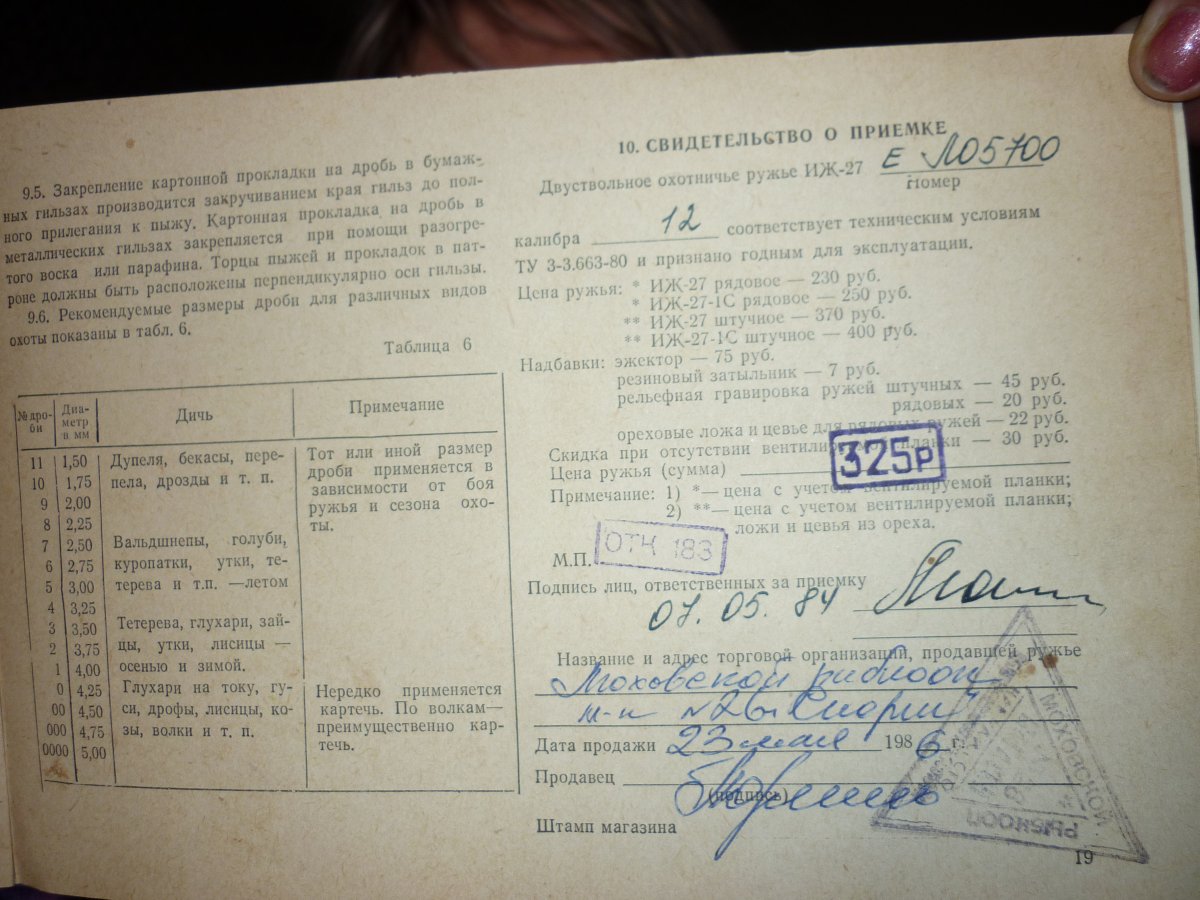 9.5. Закрепление картонной прокладки на дробь в бумаж-
ных гильзах производится закручиванием края гильз до пол-
ного прилегания к пыжу. Картонная прокладка на дробь в
металлических гильзах закрепляется при помощи разогре-
того воска или парафина. Торцы пыжей и прокладок в пат-
роне должны быть расположены перпендикулярно оси гильзы.
9.6. Рекомендуемые размеры дроби для различных видов
охоты показаны в табл. 6.
Таблица 6
№ дро-
би
Диа-
метр
в мм
Дичь
Примечание
11 1,50 Дупеля, бекасы, пере- Тот или иной размер
10 1,75 пела, дрозды и т. п. дроби применяется в
9 2,00 зависимости от боя
8 2,25 ружья и сезона охо-
7 2,50 Вальдшнепы, голуби, ты.
6 2,75 куропатки, утки, те-
5 3,00 терева и т.п. —летом
4 3,25
3 3,50 Тетерева, глухари, зай-
2 3,75 цы, утки, лисицы —
1 4,00 осенью и зимой.
0 4,25 Глухари на току, гу- Нередко применяется
00 4,50 си, дрофы, лисицы, ко- картечь. По волкам—
000 4,75 зы, волки и т. п. преимущественно кар-
0000 5,00 течь.
10. СВИДЕТЕЛЬСТВО О ПРИЕМКЕ
Двуствольное охотничье ружье ИЖ-27 Е Л05700
Номер
калибра 12 соответствует техническим условиям
ТУ 3-3.663-80 и признано годным для эксплуатации.
Цена ружья: * ИЖ-27 рядовое — 230 руб.
* ИЖ-27-1С рядовое — 250 руб.
** ИЖ-27 штучное — 370 руб.
** ИЖ-27-1С штучное — 400 руб.
Надбавки: эжектор — 75 руб.
резиновый затыльник — 7 руб.
рельефная гравировка ружей штучных — 45 руб.
рядовых — 20 руб.
ореховые ложа и цевье для рядовых ружей — 22 руб.
Скидка при отсутствии вентилируемой планки — 30 руб.
Цена ружья (сумма) 325р
Примечание: 1) *— цена с учетом вентилируемой планки;
2) **— цена с учетом вентилируемой планки,
ложи и цевья из ореха.
М.П. ОТК 183
Подпись лиц, ответственных за приемку
07. 05. 84
Название и адрес торговой организации, продавшей ружье
Моховской рыбкооп
м-н №26
Дата продажи 23 мая 1986 г.
Продавец
(подпись)
Штамп магазина
МОХОВСКОЙ
РЫБКООП
19